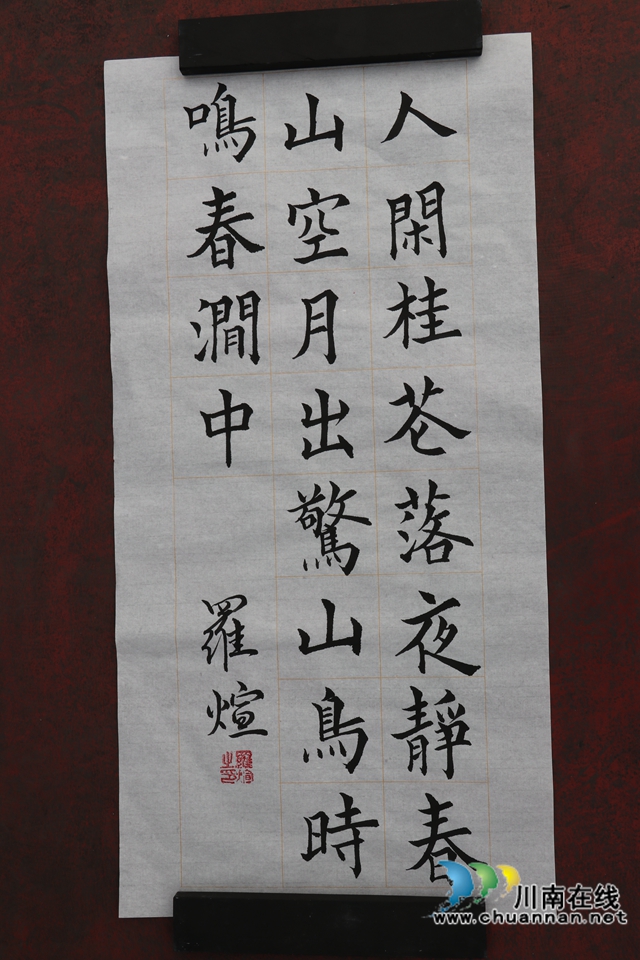 人閑桂花落夜靜春
山空月出驚山鳥時
鳴春澗中
羅煊
川南在线
www.chuannan.net